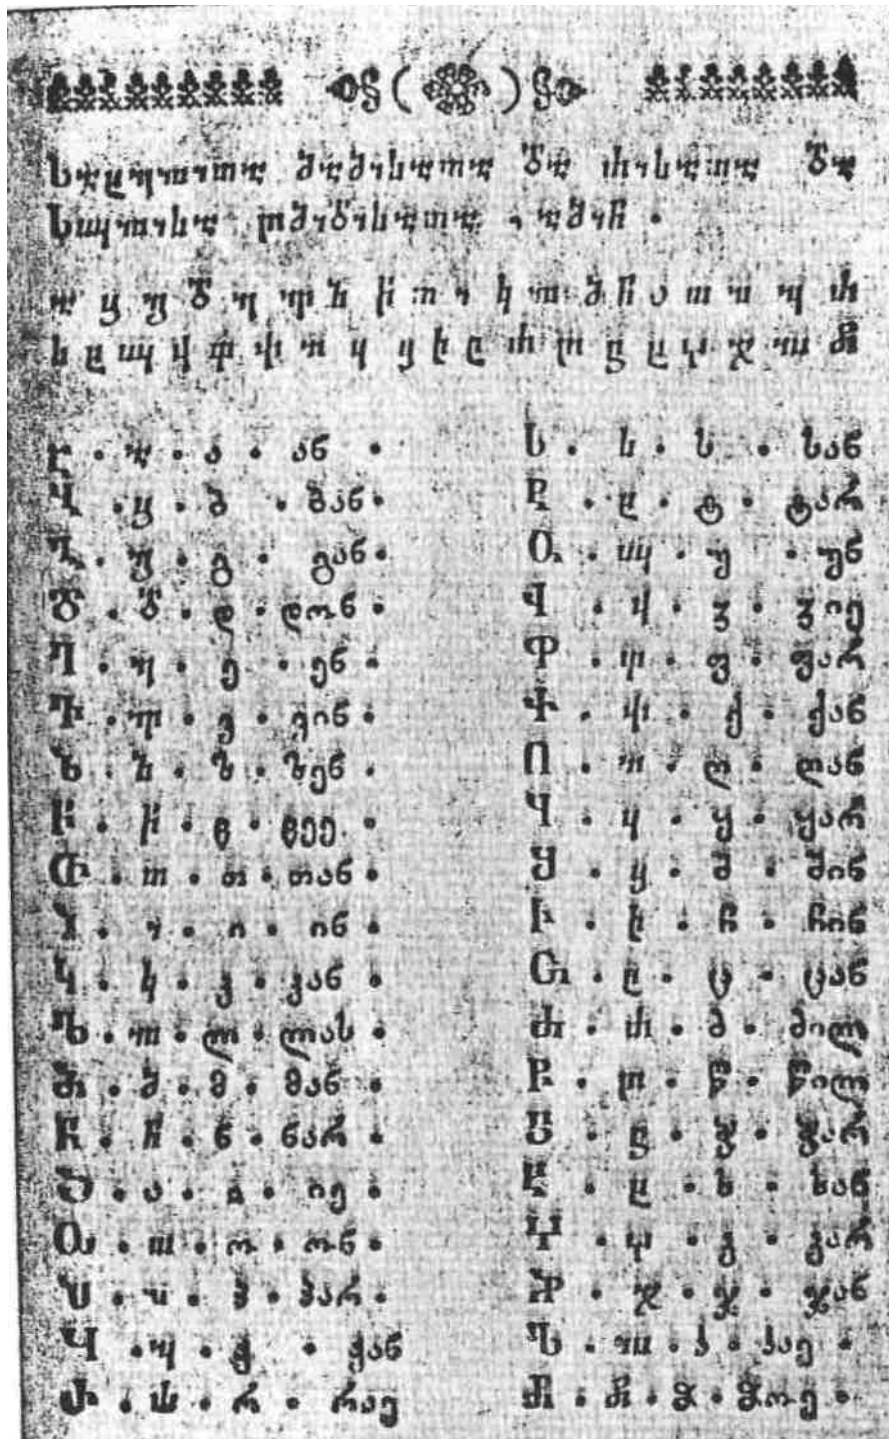 ⴑⴀⴞⴄⴊⴈⴇⴀ ⴋⴀⴋⴈⴑⴀⴇⴀ ⴃⴀ ⴛⴈⴑⴀⴇⴀ ⴃⴀ
ⴑⴓⴊⴈⴑⴀ ⴜⴋⴈⴃⴈⴑⴀⴇⴀ , ⴀⴋⴈⴌ .
ⴀ ⴁ ⴂ ⴃ ⴄ ⴅ ⴆ ⴡ ⴇ ⴈ ⴉ ⴊ ⴋ ⴌ ⴢ ⴍ ⴎ ⴏ ⴐ
ⴑ ⴒ ⴓ ⴣ ⴔ ⴕ ⴖ ⴗ ⴘ ⴙ ⴚ ⴛ ⴜ ⴝ ⴞ ⴤ ⴟ ⴠ ⴥ
Ⴀ • ⴀ • ა • ან •
Ⴁ • ⴁ • ბ • ბან •
Ⴂ • ⴂ • გ • გან •
Ⴃ • ⴃ • დ • დონ •
Ⴄ • ⴄ • ე • ენ •
Ⴅ • ⴅ • ვ • ვინ •
Ⴆ • ⴆ • ზ • ზენ •
Ⴡ • ⴡ • ჱ • ჱეე •
Ⴇ • ⴇ • თ • თან •
Ⴈ • ⴈ • ი • ინ •
Ⴉ • ⴉ • კ • კან •
Ⴊ • ⴊ • ლ • ლას •
Ⴋ • ⴋ • მ • მან •
Ⴌ • ⴌ • ნ • ნარ •
Ⴢ • ⴢ • ჲ • იე •
Ⴍ • ⴍ • ო • ონ •
Ⴎ • ⴎ • პ • პარ •
Ⴏ • ⴏ • ჟ • ჟან
Ⴐ • ⴐ • რ • რაე
Ⴑ • ⴑ • ს • სან
Ⴒ • ⴒ • ტ • ტარ
Ⴓ • ⴓ • უ • უნ
Ⴣ • ⴣ • ჳ • ჳიე
Ⴔ • ⴔ • ფ • ფარ
Ⴕ • ⴕ • ქ • ქან
Ⴖ • ⴖ • ღ • ღან
Ⴗ • ⴗ • ყ • ყარ
Ⴘ • ⴘ • შ • შინ
Ⴙ • ⴙ • ჩ • ჩინ
Ⴚ • ⴚ • ც • ცან
Ⴛ • ⴛ • ძ • ძილ
Ⴜ • ⴜ • წ • წილ
Ⴝ • ⴝ • ჭ • ჭარ
Ⴞ • ⴞ • ხ • ხან
Ⴤ • ⴤ • ჴ • ჴარ
Ⴟ • ⴟ • ჯ • ჯან
Ⴠ • ⴠ • ჰ • ჰაე •
Ⴥ • ⴥ • ჵ • ჵოე •